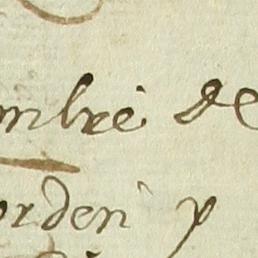 mbre de
orden y